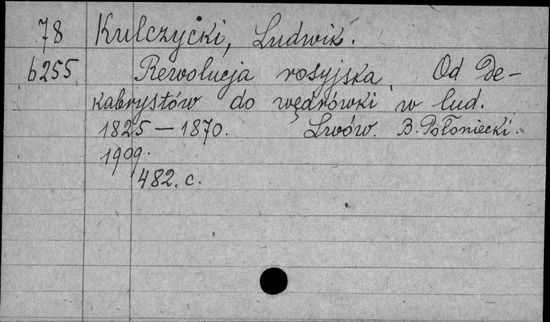 78 Kulczycki, Ludwik.
6255 Rewolucja rosyjska. Od De-
kabrystów do wędrówki w lud.
1825 — 1870. Lwów. B. Połoniecki.
1909.
482. c.